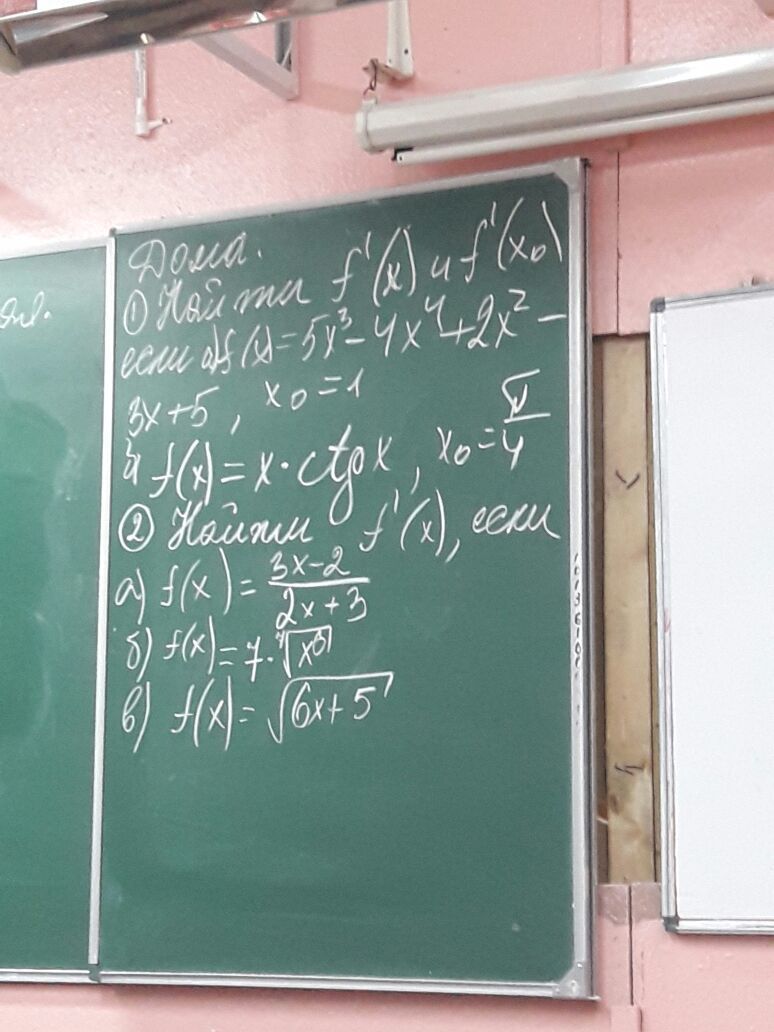 Дома.
① Найти f'(x) и f'(x₀)
если а) f(x) = 5x³ - 4x⁴ + 2x² -
3x + 5, x₀ = 1
б) f(x) = x · ctgx, x₀ = π/4
② Найти f'(x), если
а) f(x) = (3x-2)/(2x+3)
б) f(x) = 7 ·
в) f(x) = √(6x+5)